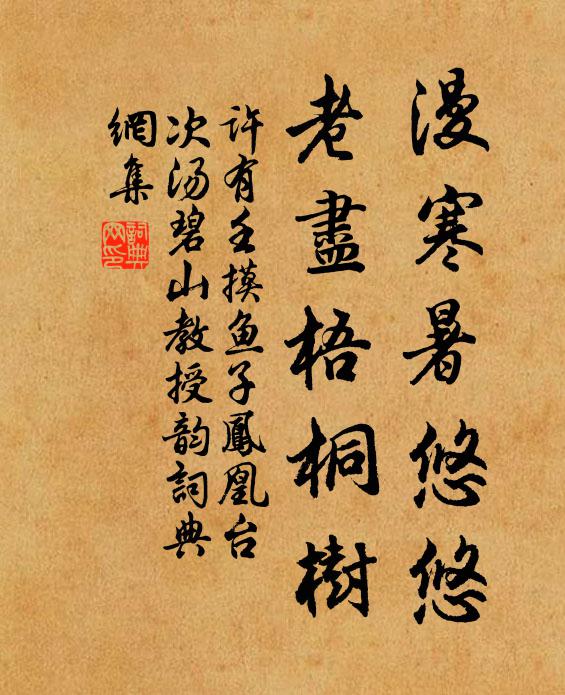 漫寒暑悠悠
老盡梧桐樹
许有壬摸鱼子鳳凰台
次汤碧山教授韵詞典
網集
詞典
网印